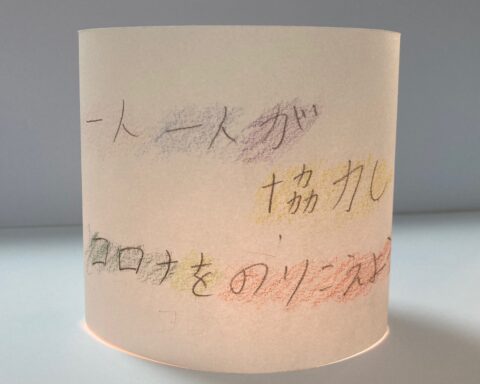 一人一人が
協力し
コロナをのりこえよ